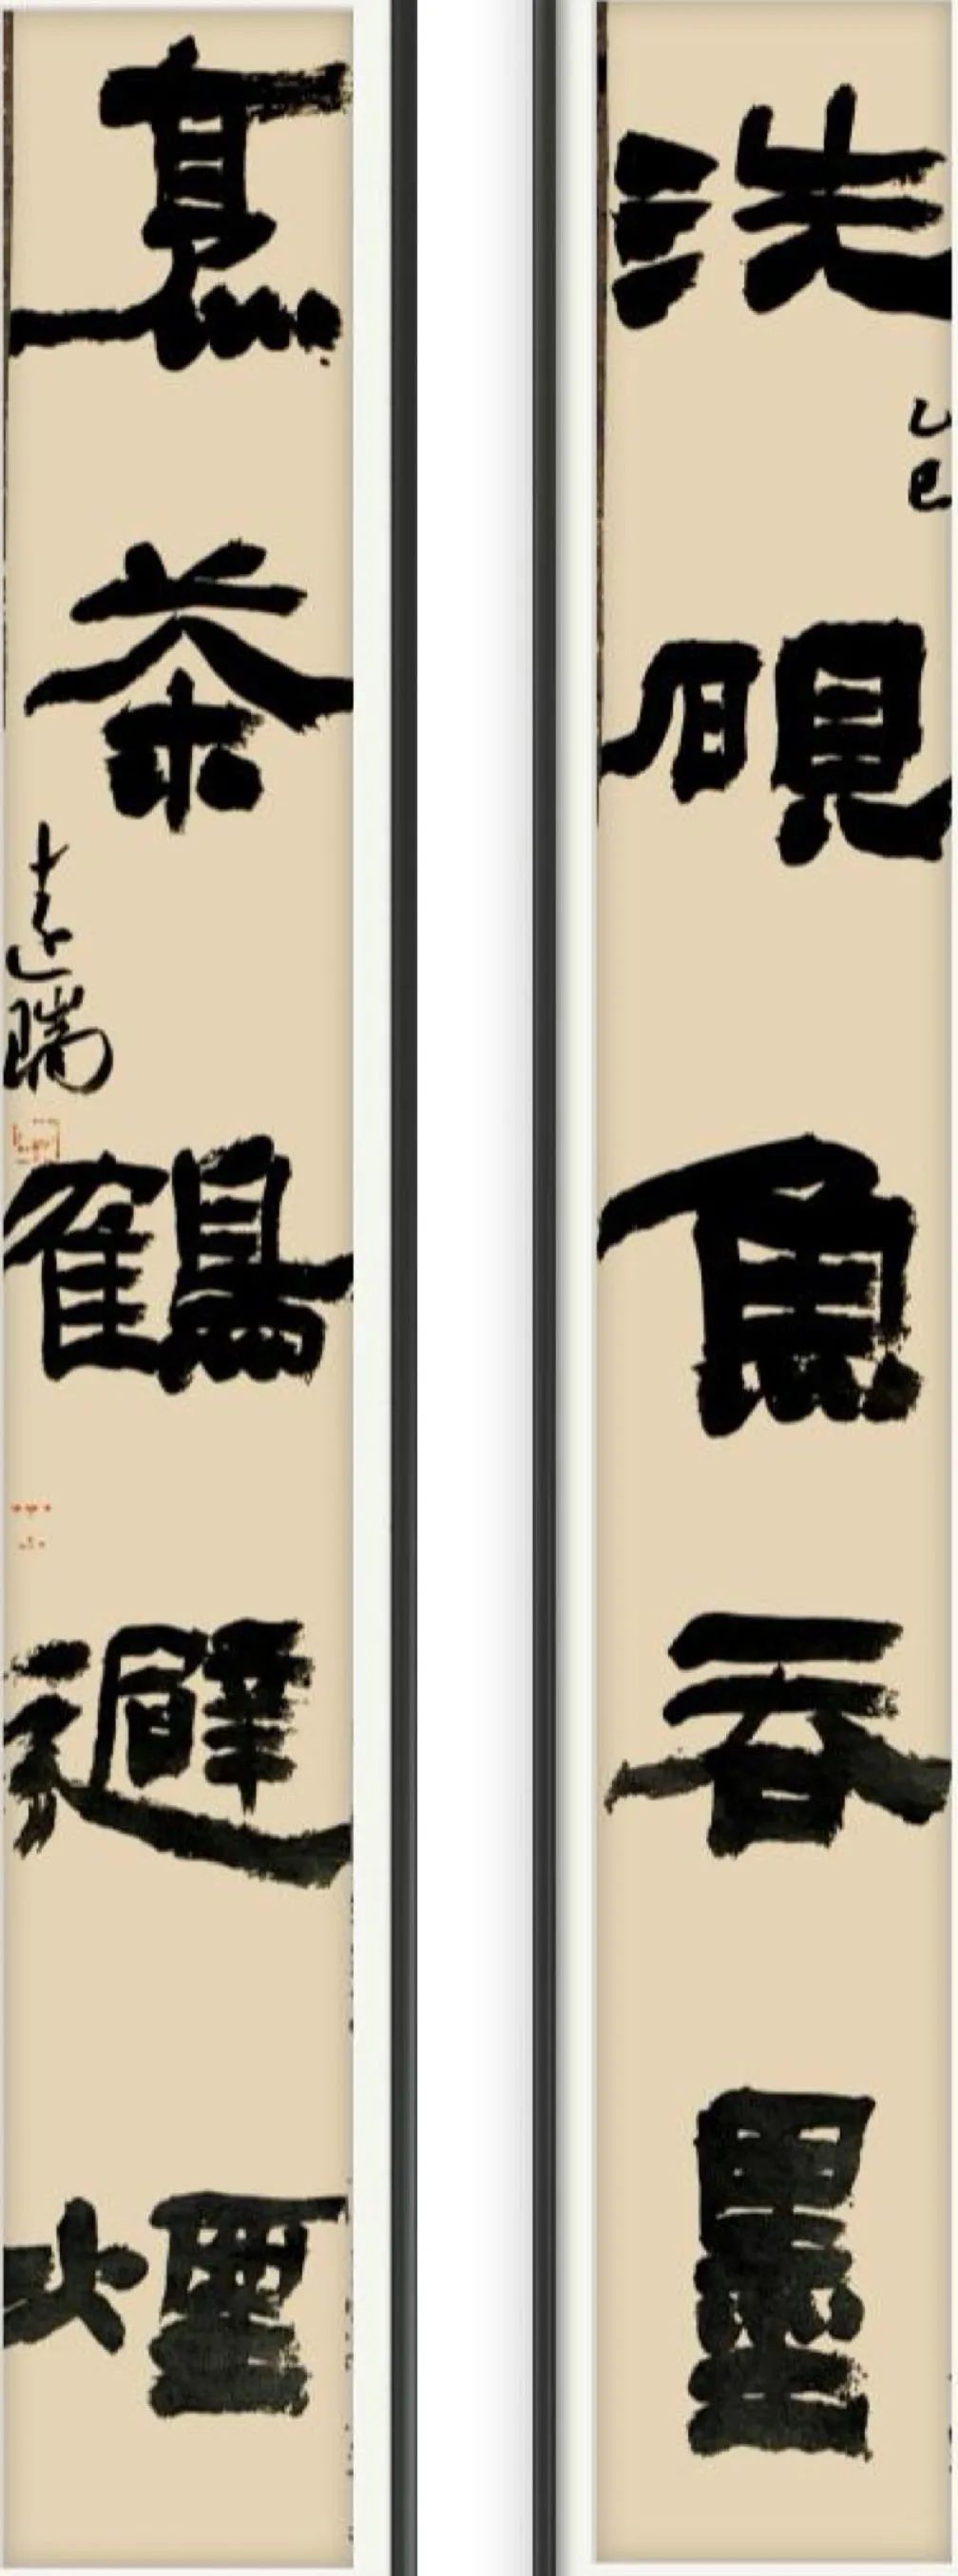 洗硯魚吞墨
乙巳
烹茶鶴避煙
志遠瑞